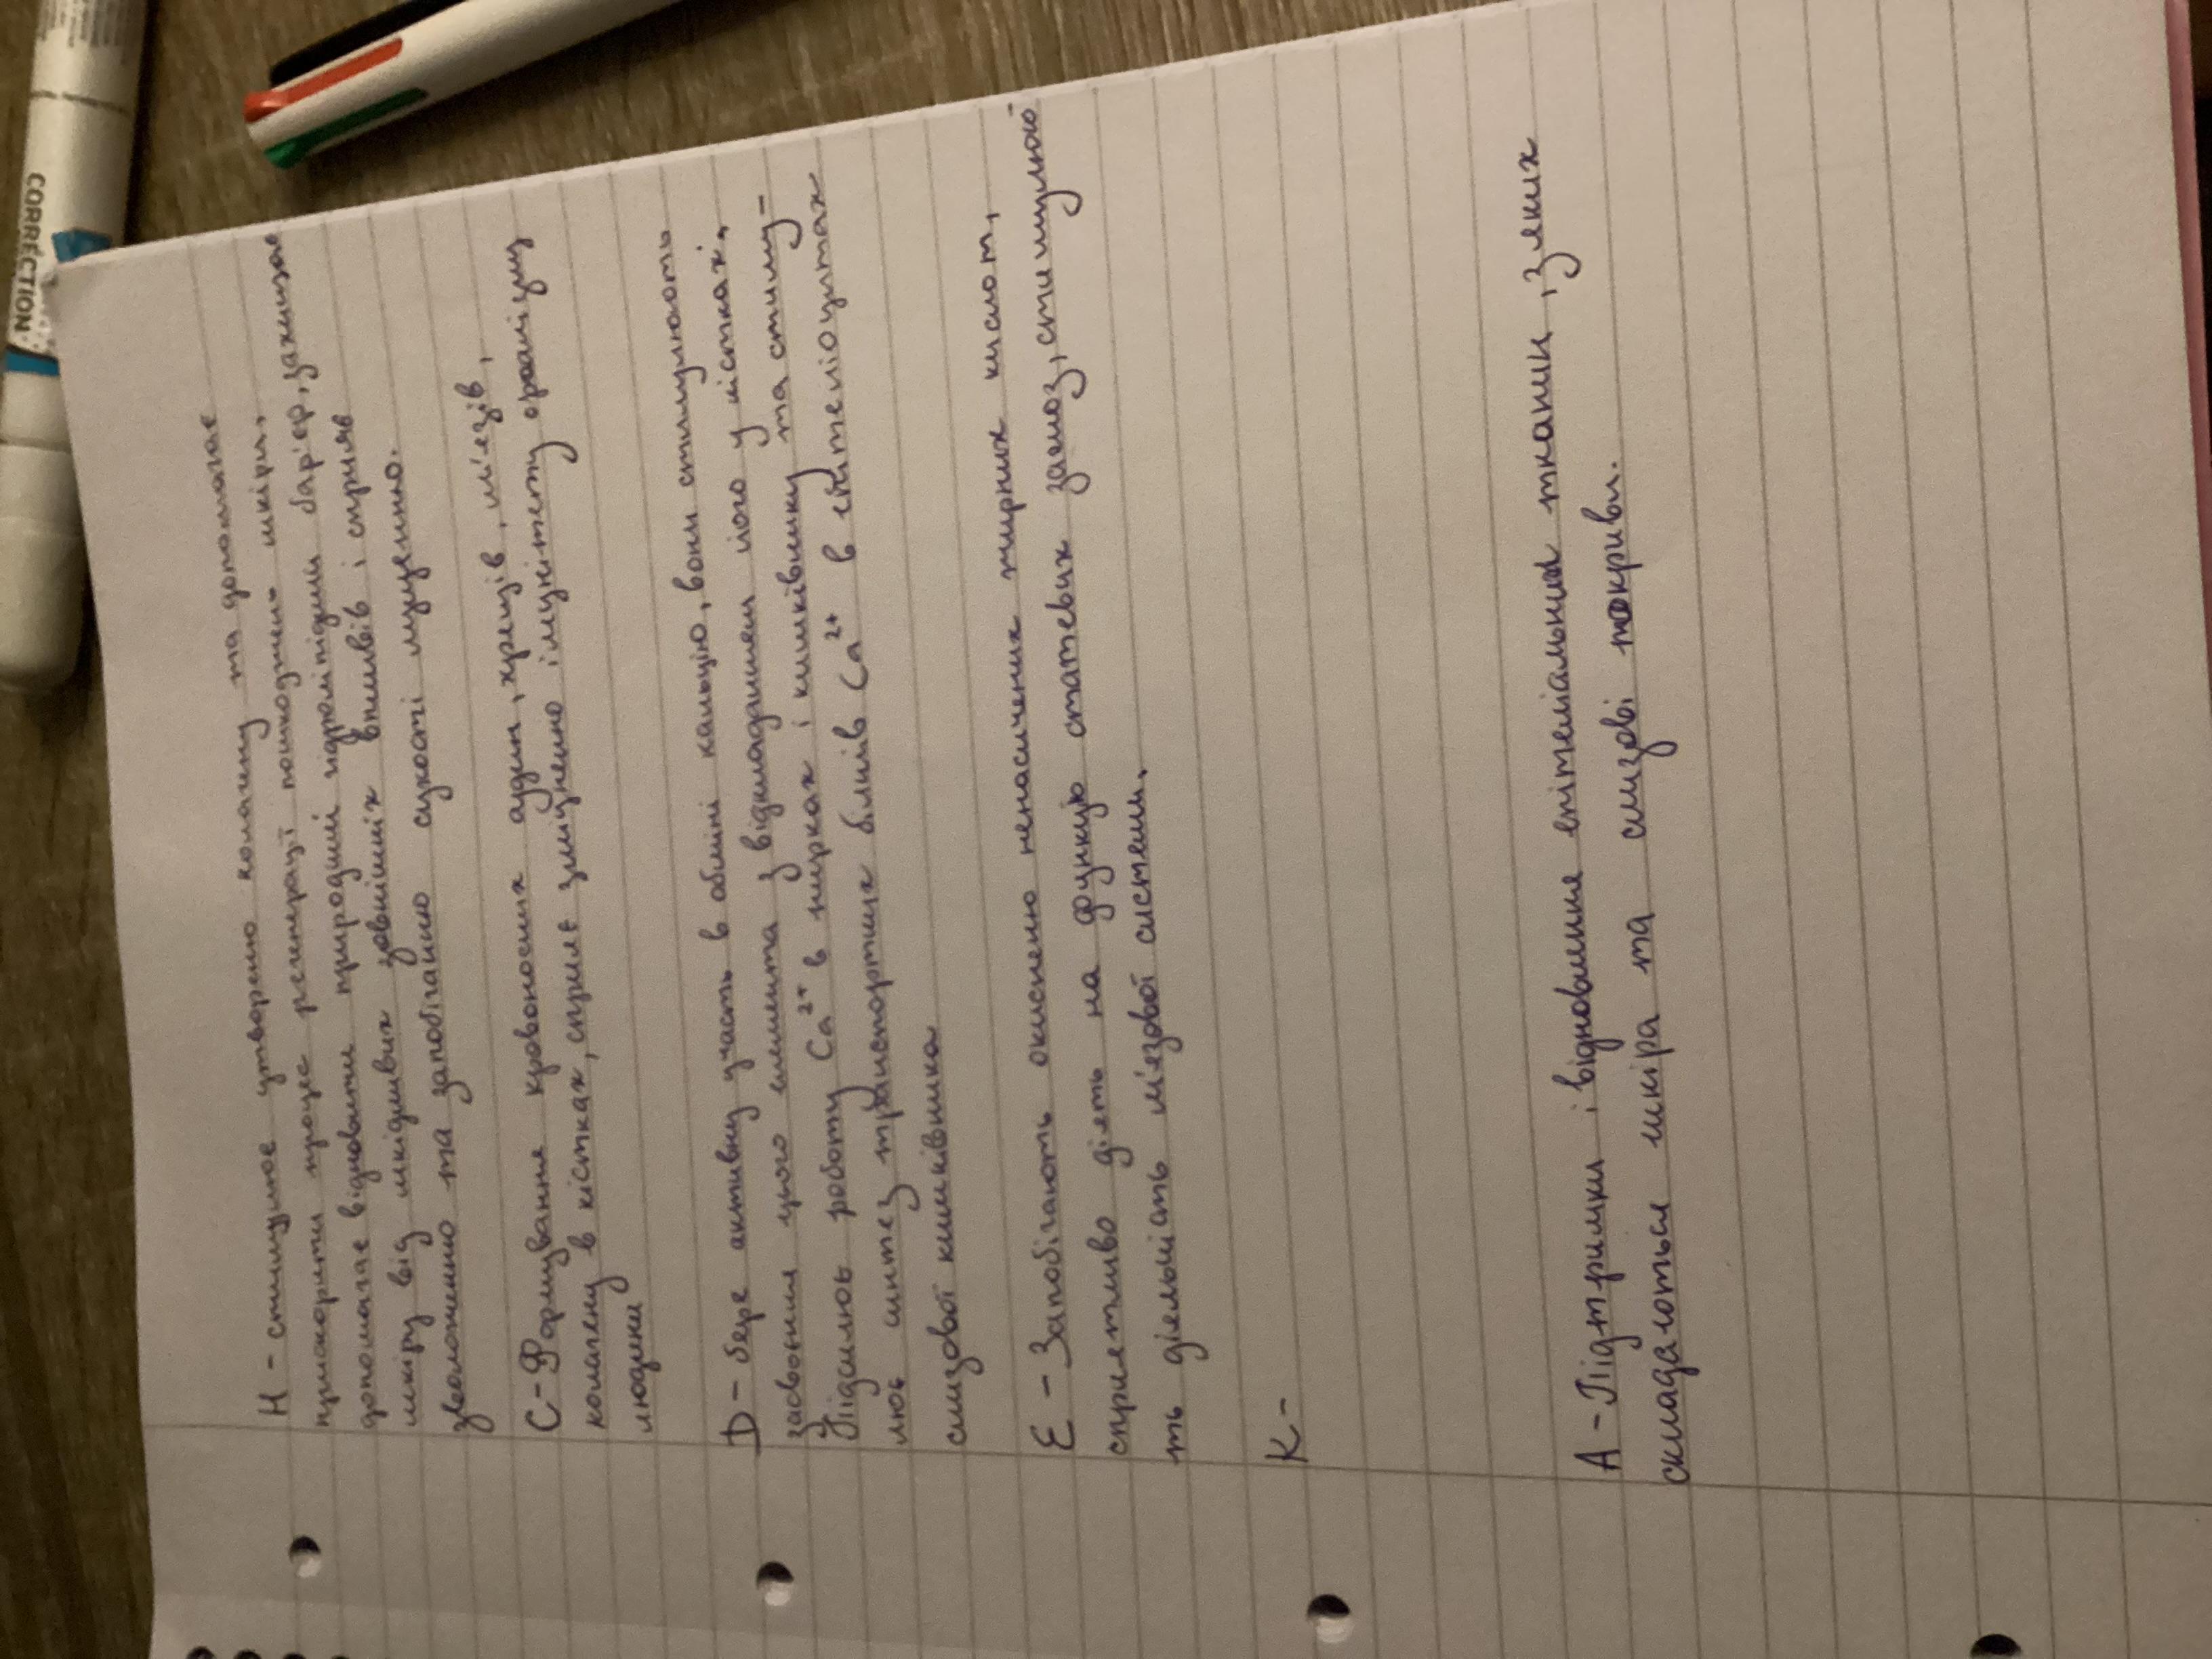 H - стимулює утворенню колагену та допомагає
прискорити процес регенерації пошкоджень шкіри,
допомагає відновити природний гідроліпідний бар'єр, захищає
шкіру від шкідливих зовнішніх впливів і сприяє
зволоженню та запобіганню сухості лущенню.
C - Формування кровоносних судин, хрящів, м'язів,
колагену в кістках, сприяє зміцненню імунітету організму
людини
D - бере активну участь в обміні кальцію, вони стимулюють
засвоєння цього елемента з відкладанням його у кістках,
Підсилює роботу Ca²⁺ в нирках і кишківнику та стиму-
лює синтез транспортних білків Ca²⁺ в епітеліоцитах
слизової кишківника
E - Запобігають окисненю ненасичених жирних кислот,
сприятливо діять на функцію статевих залоз, стимулюю
ть діяльність м'язової системи.
K -
A - Підтримки і відновлення епітеліальних тканин, з яких
складаються шкіра та слизові покриви.
CORRECTION